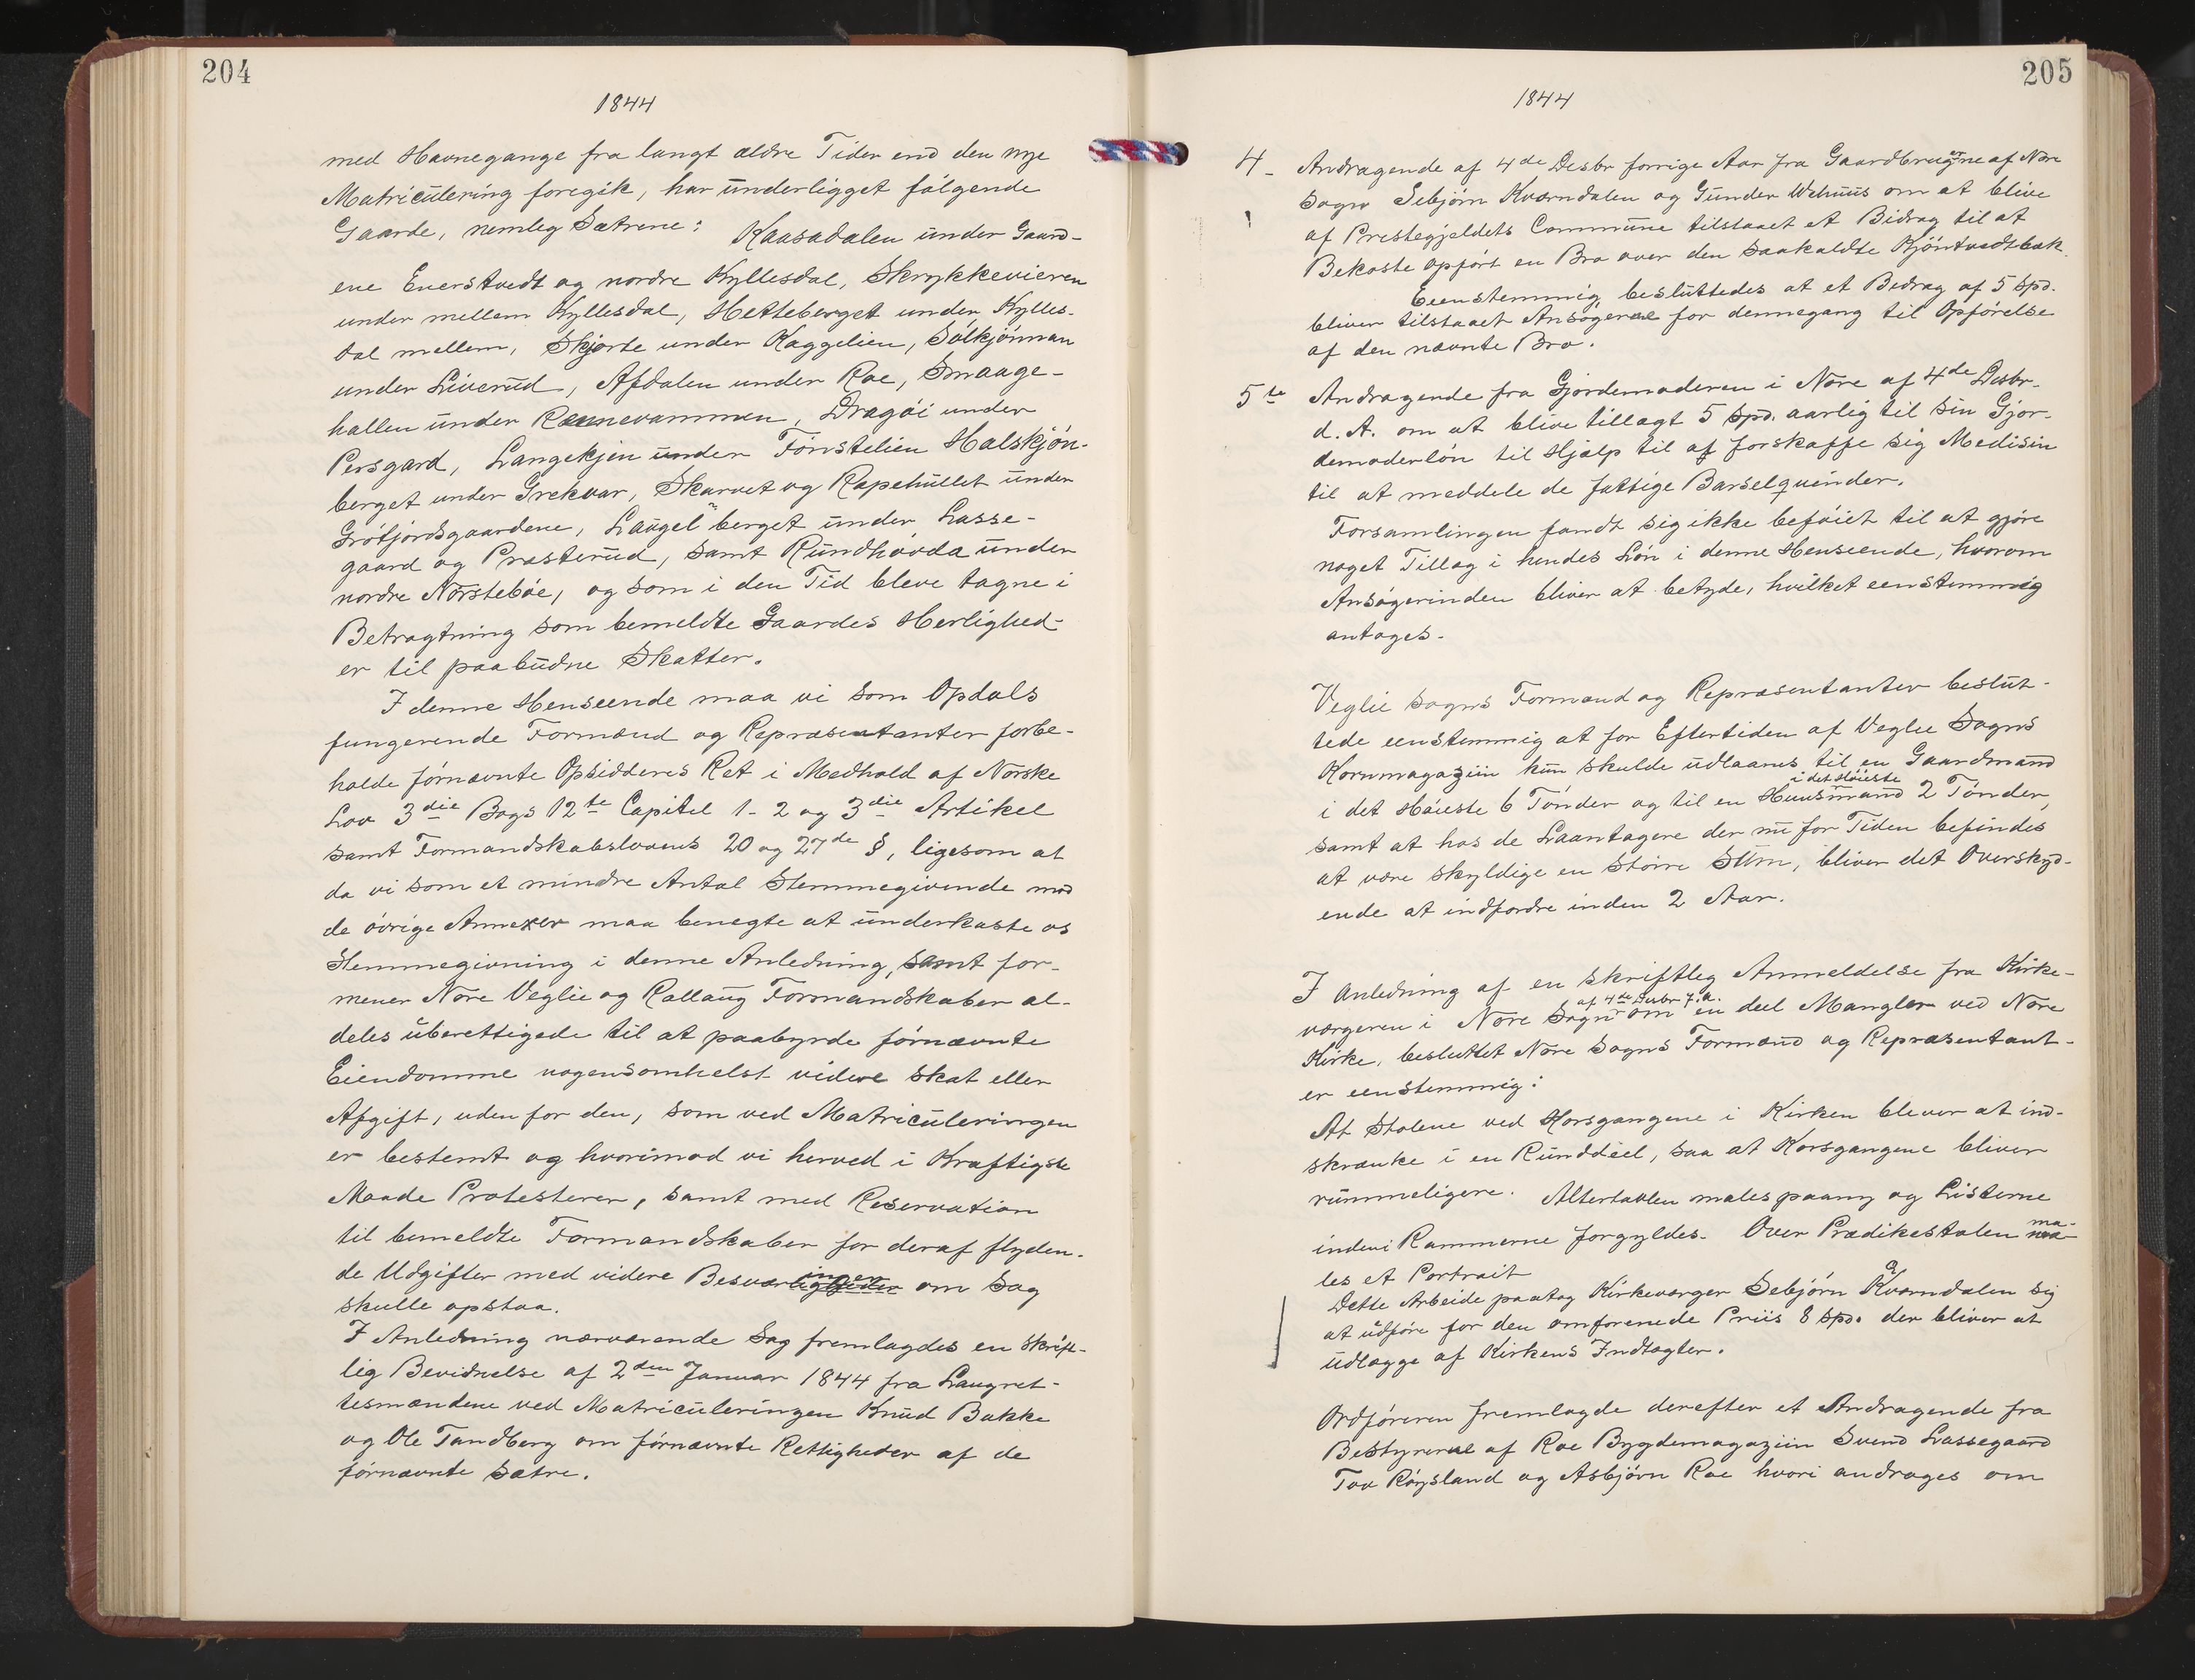 204
1844
med Havnegange fra langt ældre Tider end den nye
Matriculering foregik, har underligget følgende
Gaarde, nemlig Sætrene: Kaasadalen under Gaard-
ene Enerstvedt og nordre Kyllesdal, Skrykkevieren
under mellem Kyllesdal, Hetteberget under Kylles-
dal mellem, Skjorte under Kaggelien, Sølkjønnan
under Liverud, Afdalen under Roe, Smaage-
hallen under Rennevammen, Dragøi under
Persgard, Langekjen under Fønstelien Halskjøn-
berget under Grekvar, Skarvet og Rapehullet under
Grøtjordsgaardene, Laugel berget under Lasse-
gaard og Præsterud, samt Rundhovda under
nordre Nørstebøe, og som i den Tid bleve tagne i
Betragtning som bemeldte Gaardes Herlighed-
er til paabudne Skatter.
I denne Henseende maa vi som Opdals
fungerende Formænd og Repræsentanter forbe-
holde førnævnte Opsidderes Ret i Medhold af Norske
Lov 3die Bogs 12te Capitel 1-2 og 3die Artikel
samt Formandskabslovens 20 og 27de §, ligesom at
da vi som et mindre Antal Stemmegivende mod
de øvrige Annexer maa benegte at underkaste os
Stemmegivning i denne Anledning, samt for-
mener Nore Veglie og Rollaug Formandskaber al-
deles uberettigede til at paabyrde førnævnte
Eiendomme nogensomhelst videre Skat eller
Afgift, uden for den, som ved Matriculeringen
er bestemt og hvorimod vi herved i Kraftigste
Maade Protesterer, samt med Reservation
til bemeldte Formandskaber for deraf flyden-
de Udgifter med videre Besværligheder ingen om Sag
skulle opstaa.
I Anledning nærværende Sag fremlagdes en skrift-
lig Bevidnelse af 2den Januar 1844 fra Laugret-
tesmændene ved Matriculeringen Knud Bakke
og Ole Tandberg om førnævnte Rettigheder af de
førnævnte Sætre.
205
1844
4- Andragende af 4de Desbr forrige Aar fra Gaardbrugerne af Nore
Sogn Sebjørn Kværndalen og Gunder Wehuus om at blive
af Prestegjeldets Commune tilstaaet et Bidrag til at
Bekoste opført en Bro over den saakaldte Kjøntvedtbæk.
Eenstemmig besluttedes at et Bedrag af 5 Spd.
bliver tilstaaet Ansøgerne for dennegang til Opførelse
af den nævnte Bro.
5te Andragende fra Gjordemoderen i Nore af 4de Desbr.
d. A. om at blive tillagt 5 Spd. aarlig til sin Gjor-
demoderløn til Hjælp til af forskaffe sig Medisin
til at meddele de fattige Barselquinder.
Forsamlingen fandt sig ikke beføiet til at gjøre
noget Tillæg i hendes Løn i denne Henseende, hvorom
Ansøgerinden bliver at betyde, hvilket eenstemmig
antoges.
Veglie Sogns Formænd og Repræsentanter beslut-
tede eenstemmig at for Eftertiden af Veglie Sogns
Kornmagaziin kun skulde udlaanes til en Gaardmand
i det Høieste 6 Tønder og til en Huusmand i det Høieste 2 Tønder,
samt at hos de Laantagere der nu for Tiden befindes
at være skyldige en større Sum, bliver det Overskyd-
ende at indfordre inden 2 Aar.
I Anledning af en skriftleg Anmeldelse fra Kirke-
værgeren i Nore Sogn af 4de Desbr f.a. om en deel Mangler ved Nore
Kirke, besluttet Nore Sogns Formænd og Repræsentant-
er eenstemmig:
At Stolene ved Korsgangene i Kirken blever at ind-
skrænke i en Runddeel, saa at Korsgangene bliver
rummeligere. Altertavlen males paany og Listerne
indeni Rammerne forgyldes. Over Prædikestolen ma-
les et Portrait
Dette Arbeide paatog Kirkeværger Sebjørn Kværndalen sig
at udføre for den omforenede Priis 8 Spd. der bliver at
udlægge af Kirkens Indtægter.
Ordføreren fremlagde derefter et Andragende fra
Bestyrerne af Roe Bygdemagaziin Svend Lassegaard
Tov Røysland og Asbjørn Roe hvori andrages om